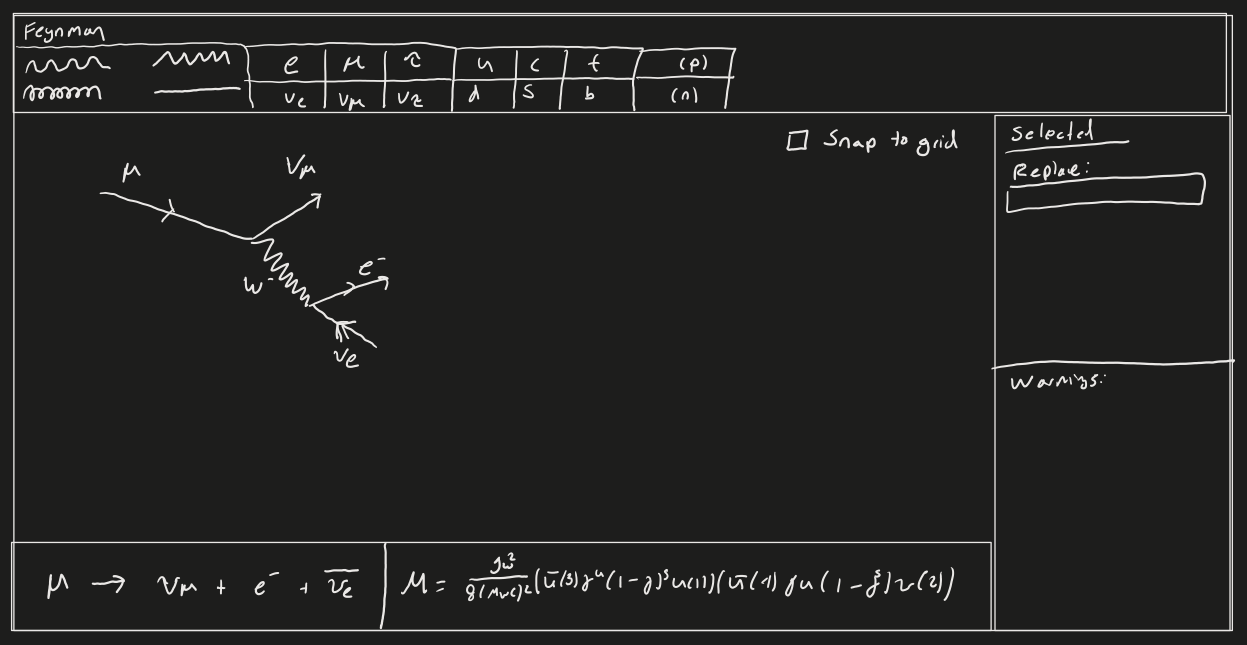 Feynman
e μ τ u c t (p)
νe νμ ντ d s b (n)
Snap to grid
Selected
Replace:
μ
νμ
W-
e-
νe
Warnings:
μ → νμ + e- + ν̅e
M = gw² / 8(Mwc)² (u̅(3)γ^μ(1-γ)⁵u(1))(u̅(4)γμ(1-γ⁵)v(2))